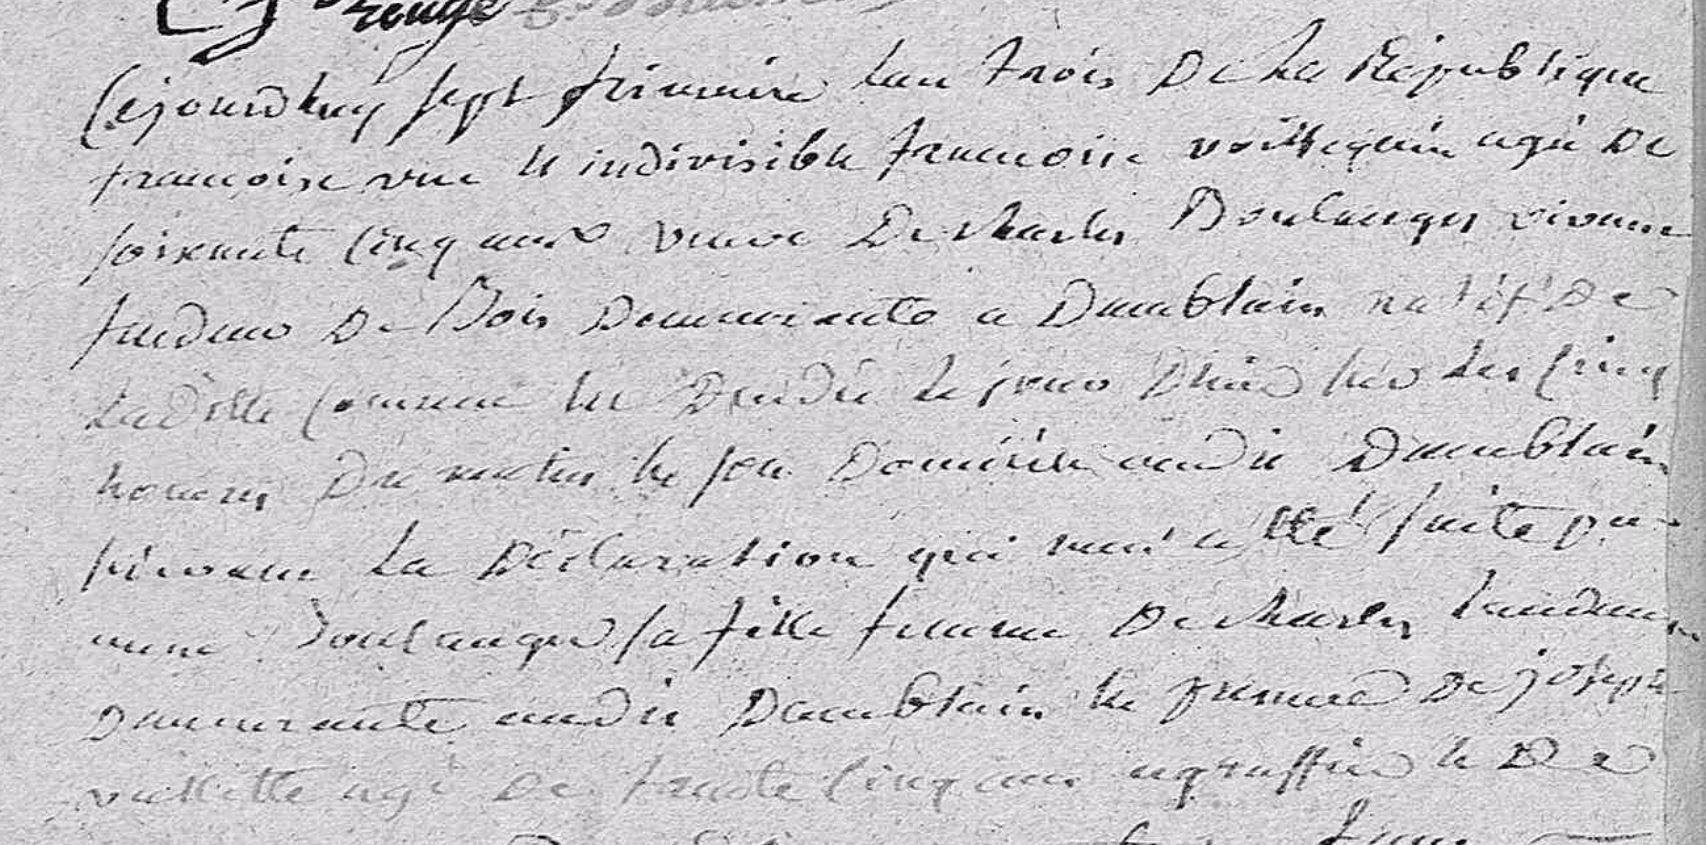 rouge
Cejourdhuy sept frimaire lan trois De La Republique
francoise une et indivisible francoise voillequin agé De
soixante cinq ans veuve De charles Boulanger vivant
fendeur De Bois Demeurante a Damblain natif De
Laditte Commune est Decedé le jour Dhier sur les cinq
heures Du matin en son Domicile audit Damblain
suivant La Declaration qui mat a été faite par
anne Boulanger sa fille femme De charles
Demeurante audit Damblain en presence De joseph
villette agé De trente cinq ans agraffeur et De